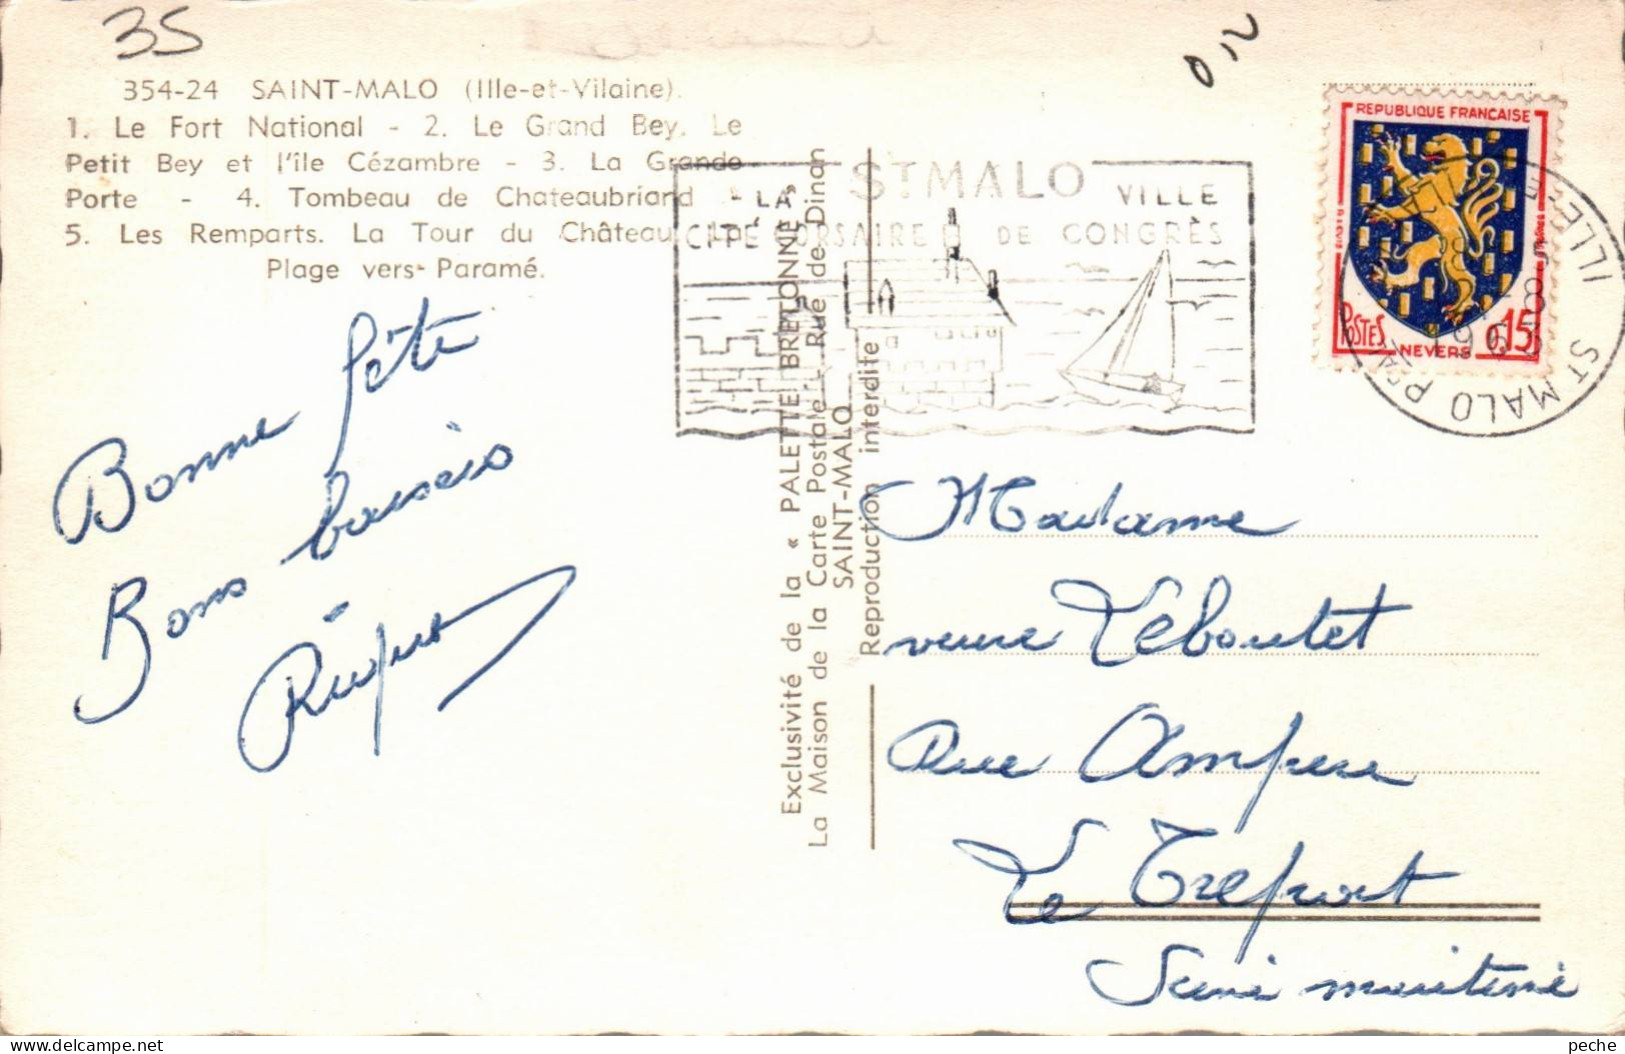 35
0,2
354-24 SAINT-MALO (Ille-et-Vilaine).
1. Le Fort National - 2. Le Grand Bey. Le
Petit Bey et l'île Cézambre - 3. La Grande
Porte - 4. Tombeau de Chateaubriand -
5. Les Remparts. La Tour du Château. La
Plage vers Paramé.
Bonne fête
Bons baisers
Exclusivité de la « PALETTE BRETONNE »
La Maison de la Carte Postale, Rue de Dinan
SAINT-MALO
Reproduction interdite
ST MALO
LA VILLE
CITÉ CORSAIRE DE CONGRÈS
REPUBLIQUE FRANÇAISE
POSTES
0,15
NEVERS
ST MALO PAL
ILLE
Madame
veuve Leboutet
Rue Ampere
Le Treport
Seine maritime
peche